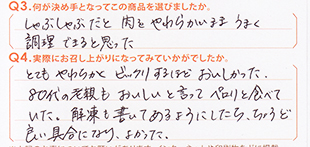 Q3.何が決め手となってこの商品を選びましたか。
しゃぶしゃぶだと肉をやわらかいまま うまく
調理できると思った
Q4.実際にお召し上がりになってみていかがでしたか。
とても やわらかく ビックリするほど おいしかった。
80代の老親も おいしいと言って ペロリと食べて
いた。解凍も書いてあるようにしたら、ちょうど
良い具合になり、よかった。